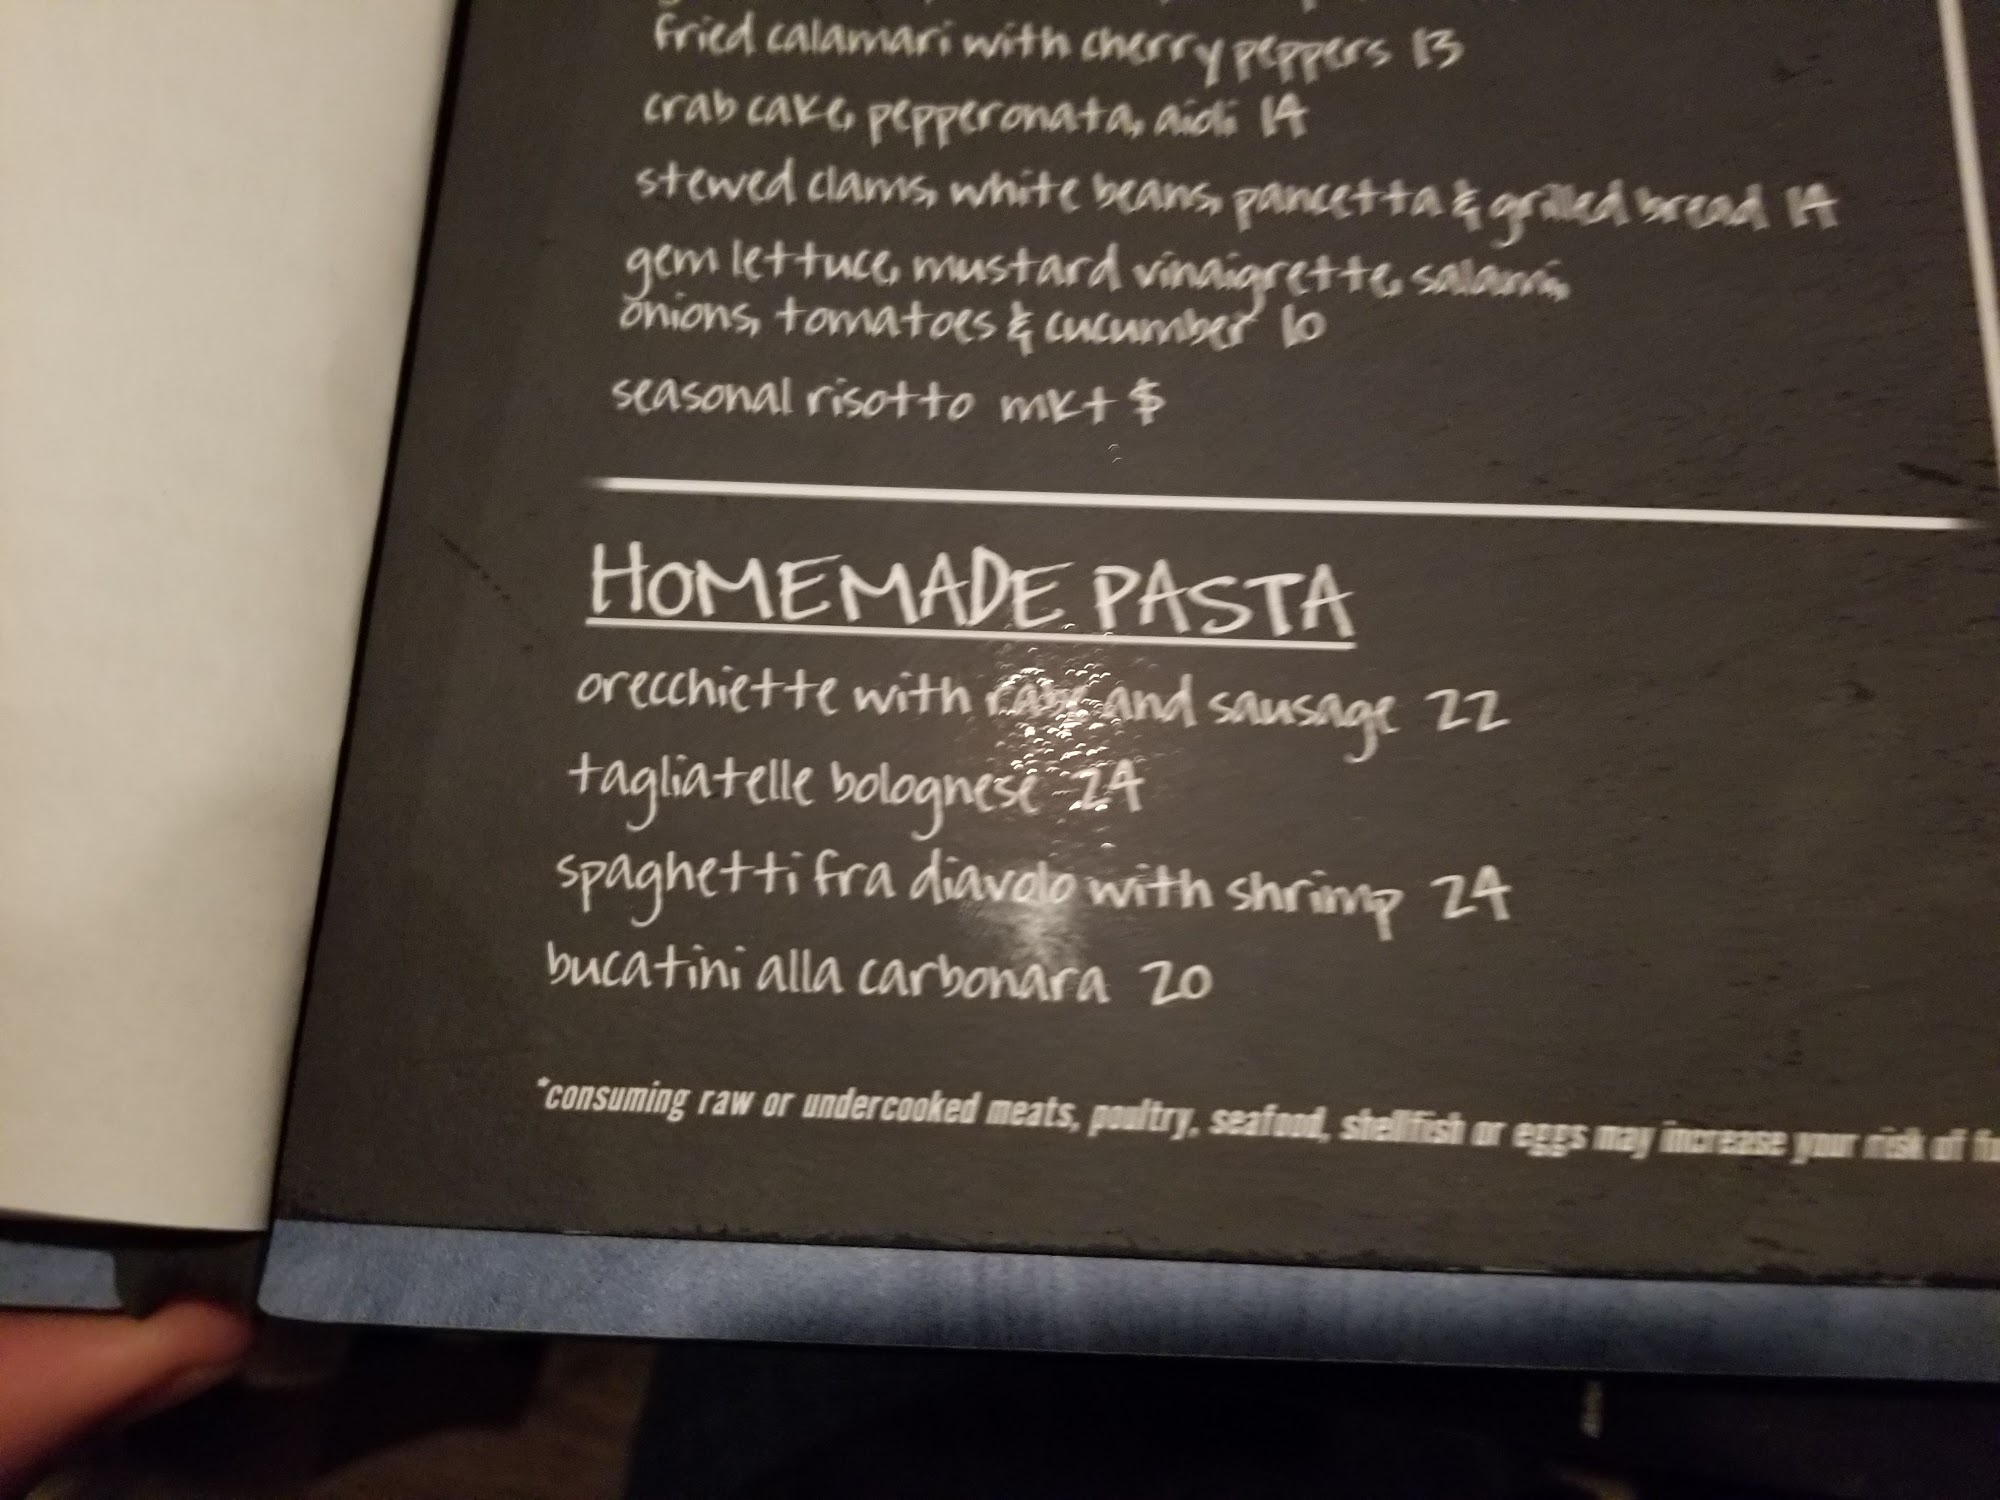 fried calamari with cherry peppers 13
crab cake, pepperonata, aioli 14
stewed clams, white beans, pancetta & grilled bread 14
gem lettuce, mustard vinaigrette, salami,
onions, tomatoes & cucumber 10
seasonal risotto mkt $
HOMEMADE PASTA
orecchiette with rabe and sausage 22
tagliatelle bolognese 24
spaghetti fra diavolo with shrimp 24
bucatini alla carbonara 20
*consuming raw or undercooked meats, poultry, seafood, shellfish or eggs may increase your risk of